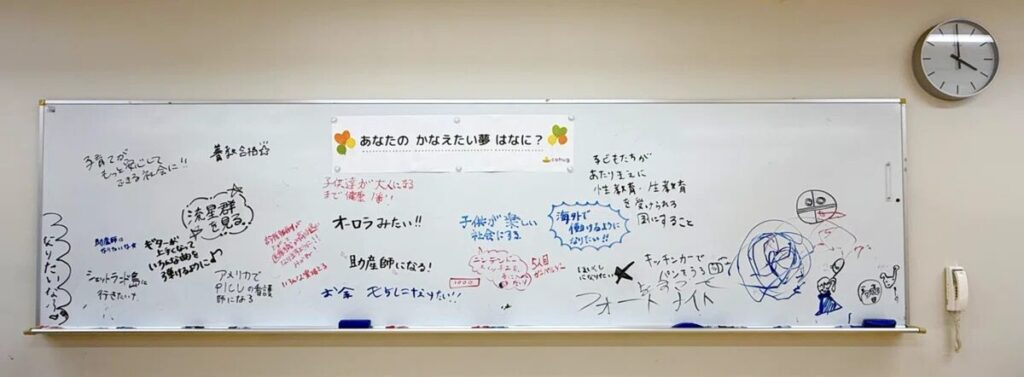 あなたの かなえたい夢 はなに？
cohug
子育てが
もっと安心して
できる社会に!!
養教合格☆
流星群
を見る。
助産師に
なりたいな☆
ギターが
上手くなって
いろんな曲を
弾けるように♪
シェットランド島に
行きたい?
アメリカで
PICUの看護
師になる
子供達が大人になる
まで健康
オーロラみたい!!
助産師になる!
お金もちになりたい!!
子供が楽しい
社会にする
海外で
働けるように
なりたい!!
ニンテンドー
1000
5人目
子どもたちが
あたり前に
性教育・生教育
を受けられる
国にすること
ほいくし
になりたい
キッチンカーで
パンをうる
フォートナイト